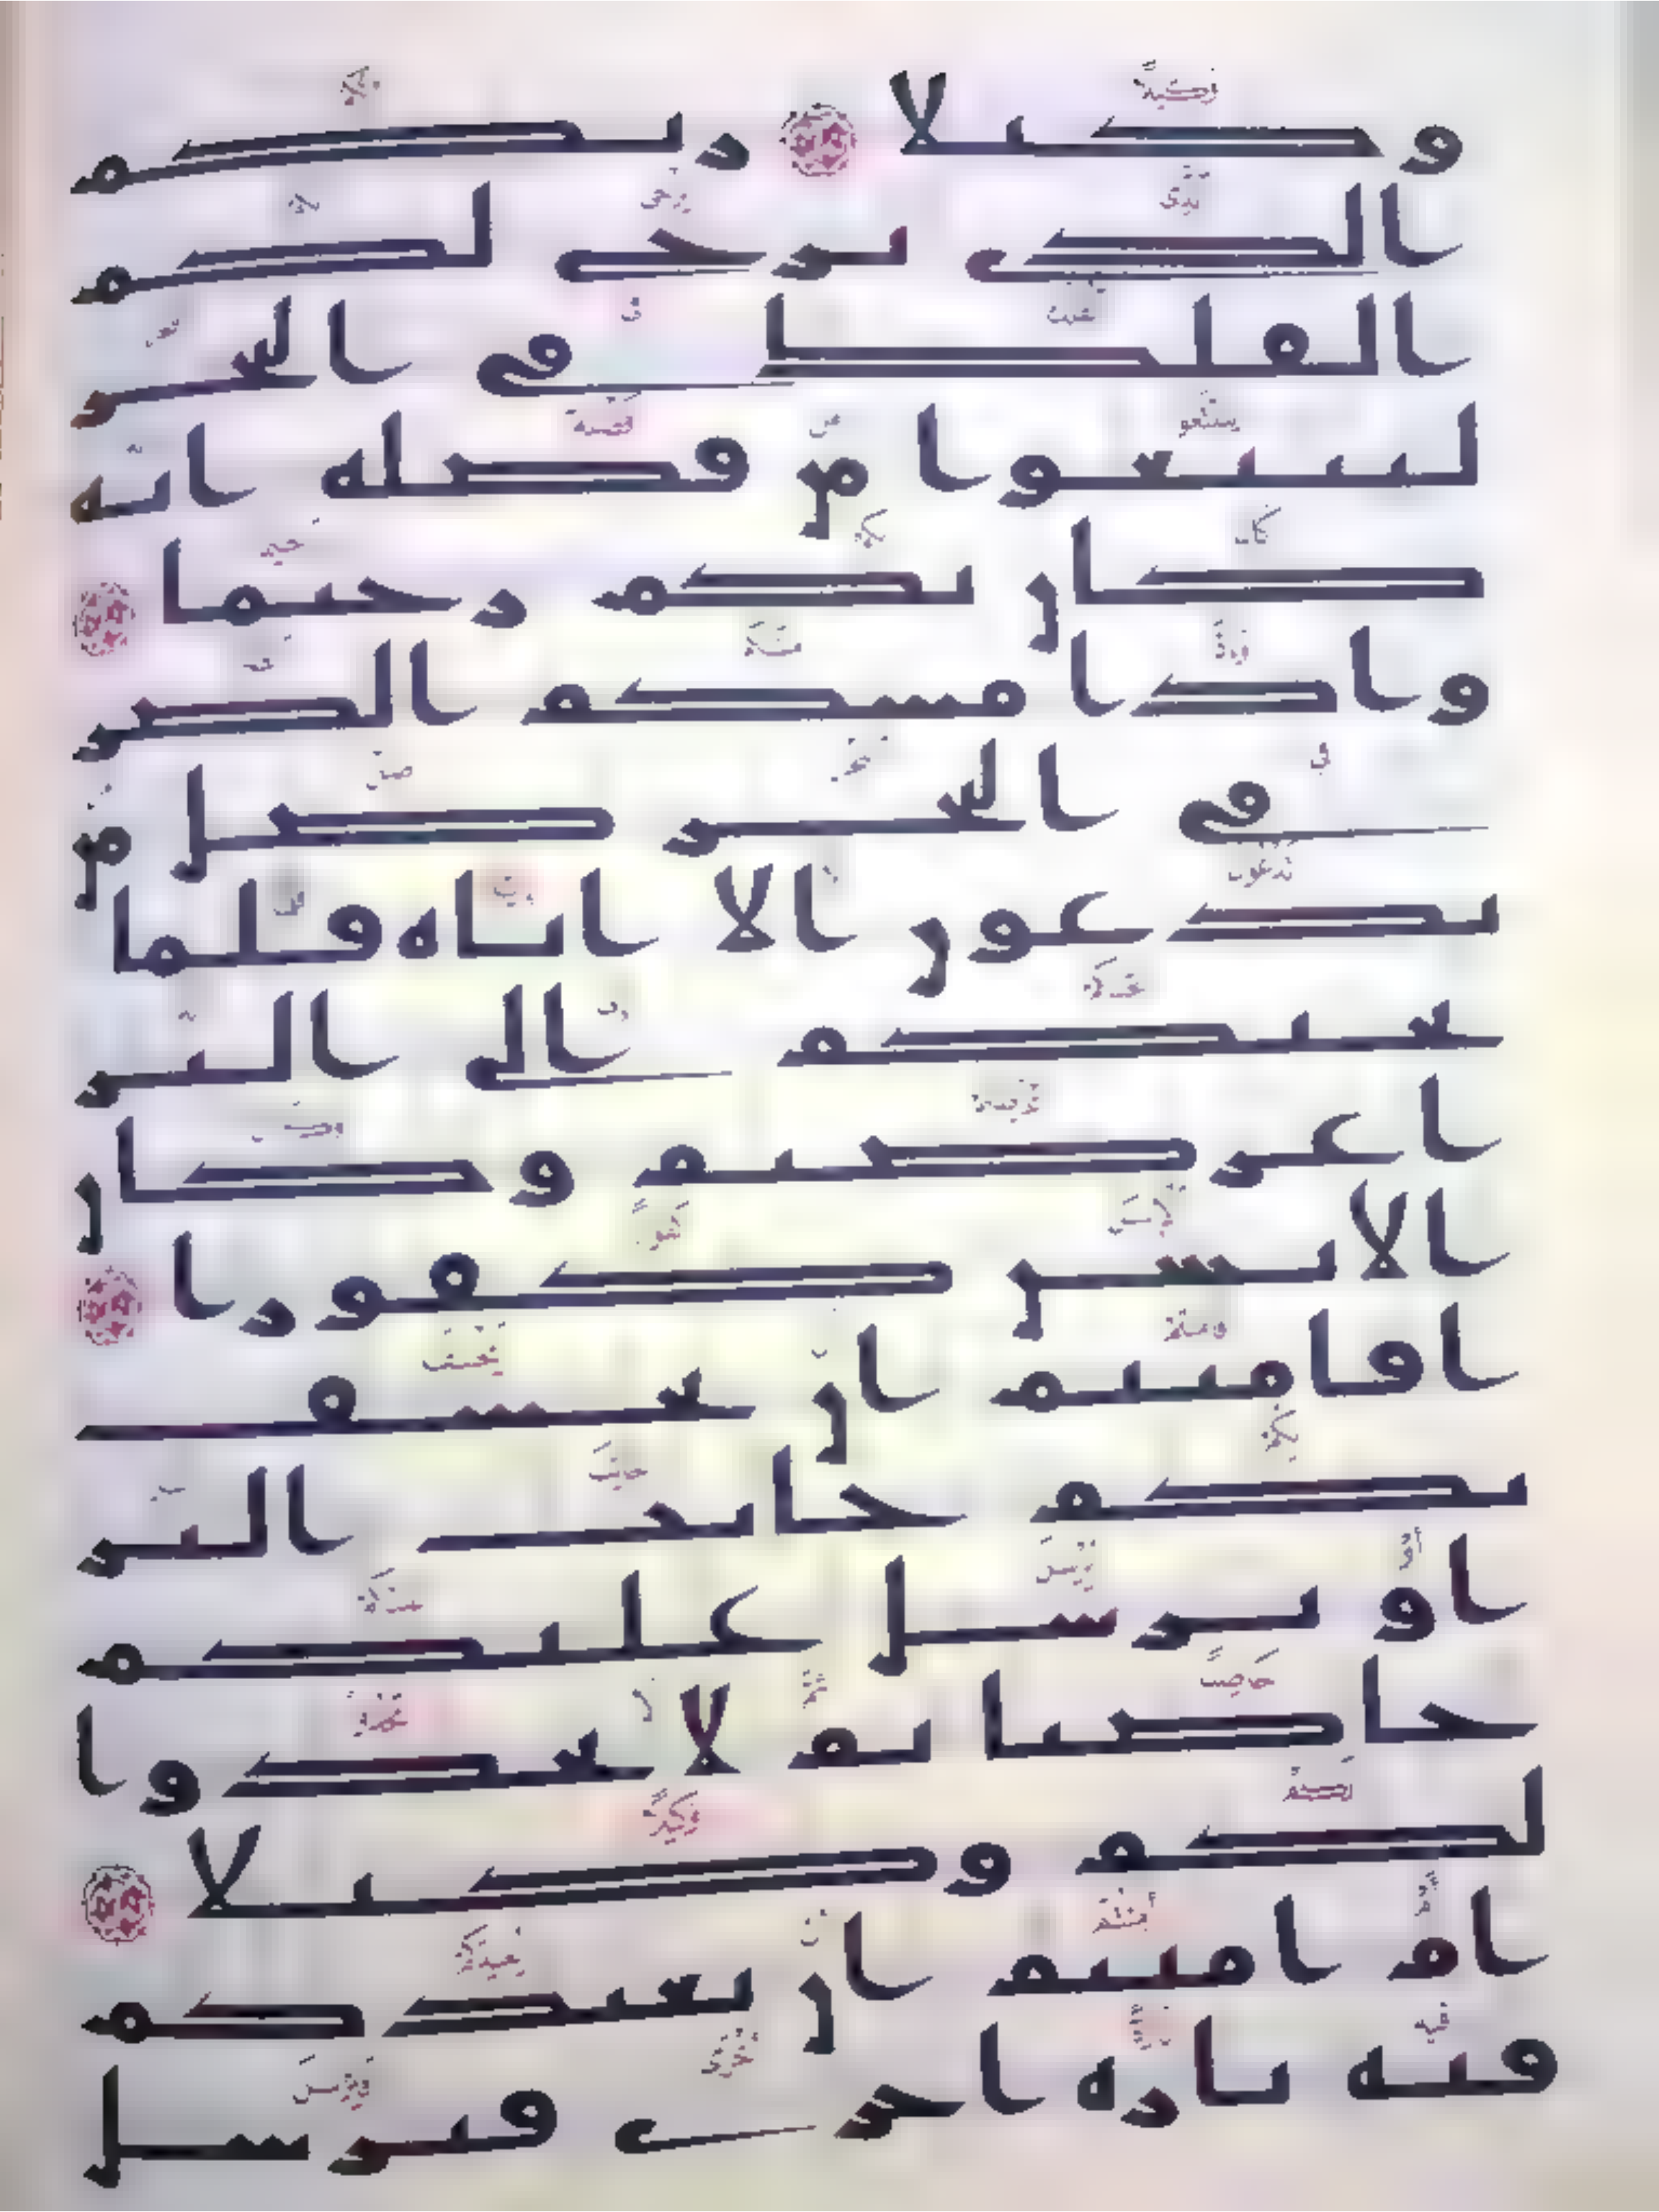 وكيلا ربكم
الذي يزجي لكم
الفلك في البحر
لتبتغوا من فضله انه
كان بكم رحيما
واذا مسكم الضر
في البحر ضل من
تدعون الا اياه فلما
نجيكم الى البر
اعرضتم وكان
الانسن كفورا
افامنتم ان يخسف
بكم جانب البر
او يرسل عليكم
حاصبا ثم لا تجدوا
لكم وكيلا
ام امنتم ان يعيدكم
فيه تارة اخرى فيرسل